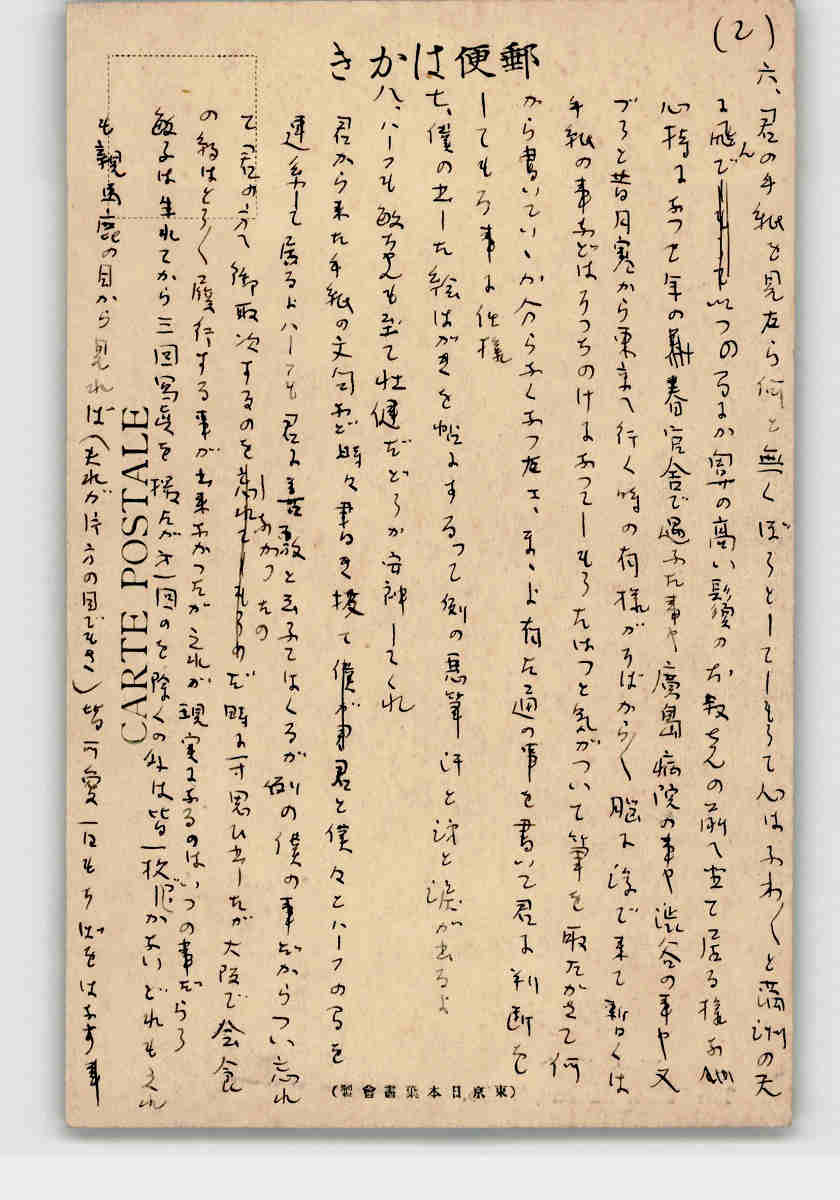 郵便はがき
(2)
六、君の手紙を見たら何と無くぼうとしてしもうて心はふわ〱と満洲の天
に飛んでいつのまにか鼻の高い髭のお教さんの前へ立て居る様な
心持になつて年の春官舎で遇ふた事や廣島病院の事や渋谷の事や又
ブうと昔日寒から東京へ行く時の有様がそばから〱脳に浮で来て暫くは
手紙の事などはそつちのけになつてしもうたはつと気がついて筆を取たがさて何
から書いていゝか分らなくなつたさ、まゝよ有た通の事を書いて君に判断を
してもろう事に仕様
七、僕の出した絵はがきを帖にするつて例の悪筆汗と涙が出るよ
八、ハーフも敏ちやんも至て壮健だどうか安神してくれ
君から来た手紙の文句など時々書き抜て僕が君と僕々とハーフの間を
連絡して居るよハーフも君に善敷と云ふてはくるが例の僕の事だからつい忘れ
て君の方へ御取次するのを しなかつたの だ時に一寸思ひ出したが大阪で会食
の約はとう〱履行する事が出来なかつたが之れが現実になるのはいつの事だらう
敏子は生れてから三回写真を撮たが第一回のを除くの外は皆一枚がないどれもこれ
も親馬鹿の目から見れば(夫れが片方の目でもさ)皆可愛一日もそばをはなす事
CARTE POSTALE
(東京日本葉書會製)